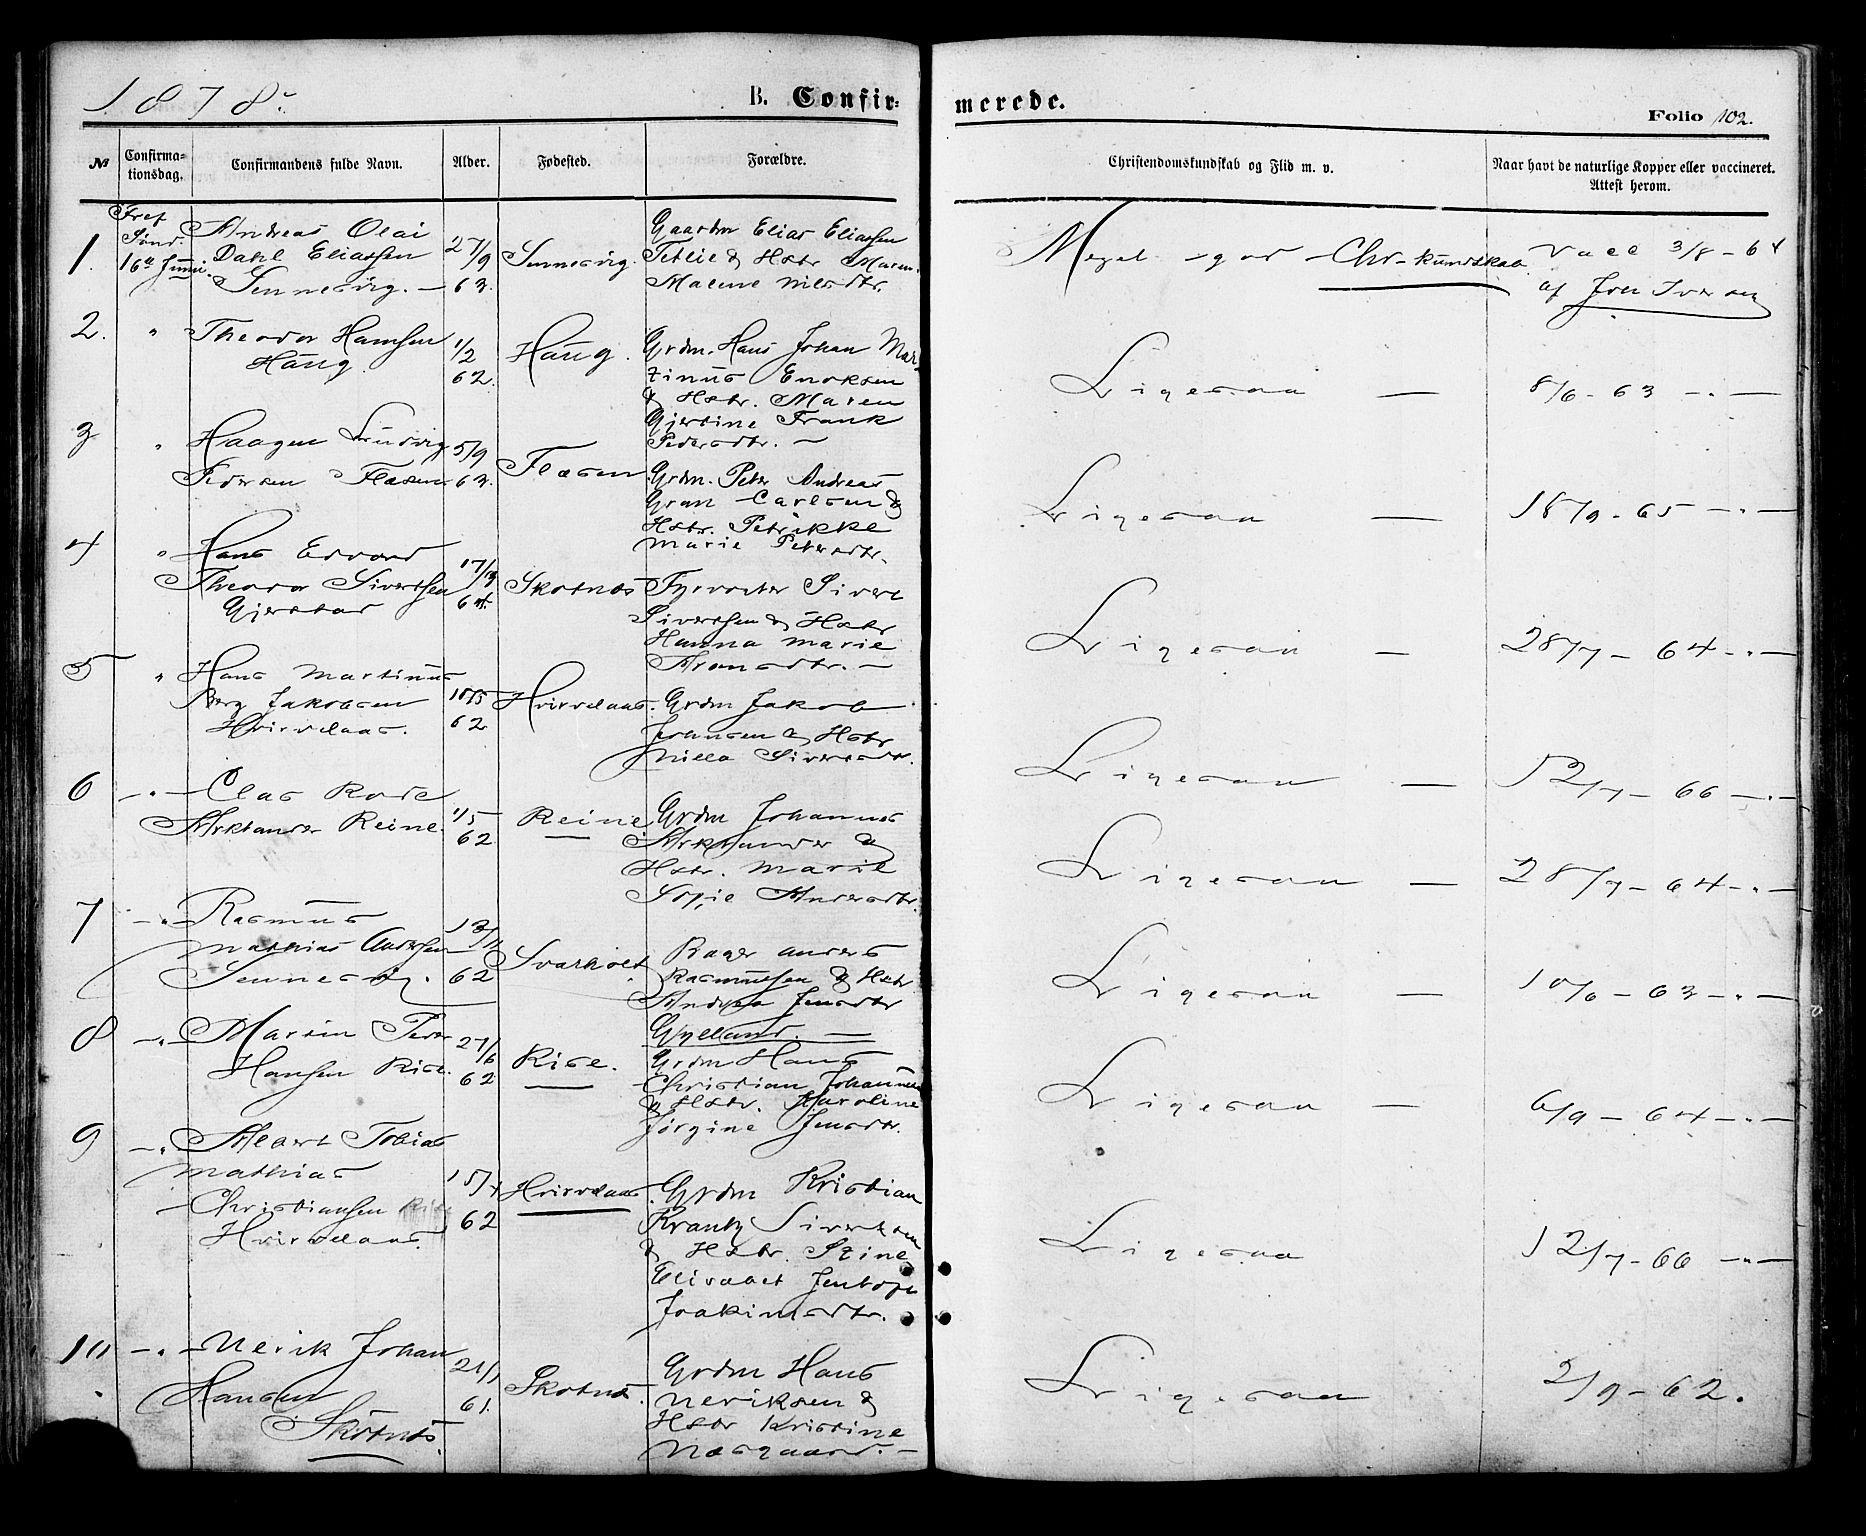 1878.
B. Confir-
merede.
Folio 102.
№
Confirma-
tionsdag.
Confirmandens fulde Navn.
Alder.
Fødested.
Forældre.
Christendomskundskab og Flid m. v.
Naar havt de naturlige Kopper eller vaccineret.
Attest herom.
1.
Sønd.
16de Juni.
Andreas Olai
Dahl Eliassen
Sennesvig. —
27/9
63.
Sennesvig.
Gaardm Elias Eliassen
& Hstr Maren
Malene Nilsdtr.
Meget god Chr-kundskab
Vacc 3/8 - 64
af Jon Iversen
2.
"
Theodor Hansen
Haug.
1/2
62.
Haug.
Grdm. Hans Johan Mar-
tinus Enoksen
& Hstr. Maren
Gjertine Frank
Pedersdtr. —
Ligesaa —
8/6 - 63 - " -
3
"
Haagen Ludvig
Pedersen Flæsen
5/9
63.
Flæsen
Grdm. Peter Andreas
Gran Carlsen &
Hstr. Petrikke
Marie Petersdtr.
Ligesaa —
18/9 - 65 - " -
4
"
Hans Edvard
Theodor Sivertsen
Gjerstad
17/3
64.
Skotnes
Fyrvogter Sivert
Sivertsen & Hstr
Hanna Marie
Aronsdtr. —
Ligesaa —
28/7 - 64 - " -
5
"
Hans Martinus
Berg Jakobsen
Hvirvelaas.
18/5
62
Hvirvelaas.
Grdm Jakob
Johnsen & Hstr
Nilla Sivertsdtr.
Ligesaa —
12/7 - 66 - " -
6
- " -
Clas Rode
Arktander Reine.
1/5
62
Reine
Grdm Johannes
Arktander &
Hstr. Marie
Sofie Andersdtr.
Ligesaa —
28/7 - 64 - " -
7
- " -
Rasmus
Mathias Andersen
Sennesvig.
13/11
62
Svarholt
Bager Anders
Rasmussen & Hstr
Andrea Jensdtr
Gylland. —
Ligesaa —
10/6 - 63 - " -
8
- " -
Martin Peder
Hansen Rise.
27/6
62
Rise.
Grdm Hans
Christian Johannes
& Hstr. Karoline
Jørgine Jensdtr.
Ligesaa —
6/9 - 64 - " -
9
- " -
Albert Tobias
Mathias
Christiansen
Hvirvelaas.
15/4
62
Hvirvelaas.
Grdm Kristian
Krantz Sivertsen
& Hstr. Stine
Elisabet Jentoft
Joakimsdtr.
Ligesaa
12/7 - 66 - " -
10
- " -
Nerik Johan
Hansen
Skotnes.
21/1
61.
Skotnes.
Grdm Hans
Neriksen &
Hstr Kristine
Næsgaard. —
Ligesaa
2/9 - 62.